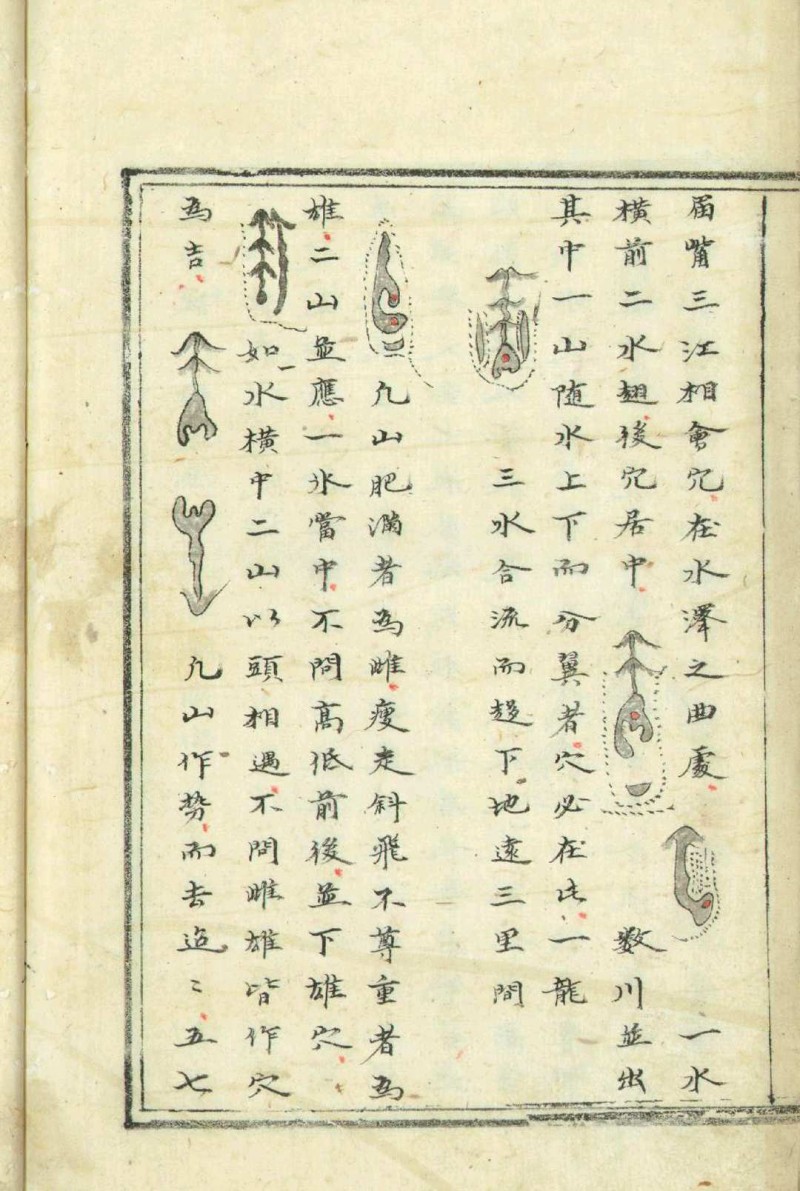 屇嘴三江相會穴在水澤之曲處 一水
橫前二水翅後穴居中 数川並出
其中一山随水上下而分翼者穴必在此一龍
三水合流而趍下地遠三里間
凢山肥滿者為雌瘦走斜飛不尊重者為
雄二山並應一水當中不問高低前後並下雄穴
如水橫中二山以頭相遇不問雌雄皆作穴
為吉 凢山作势而去迢〻五七